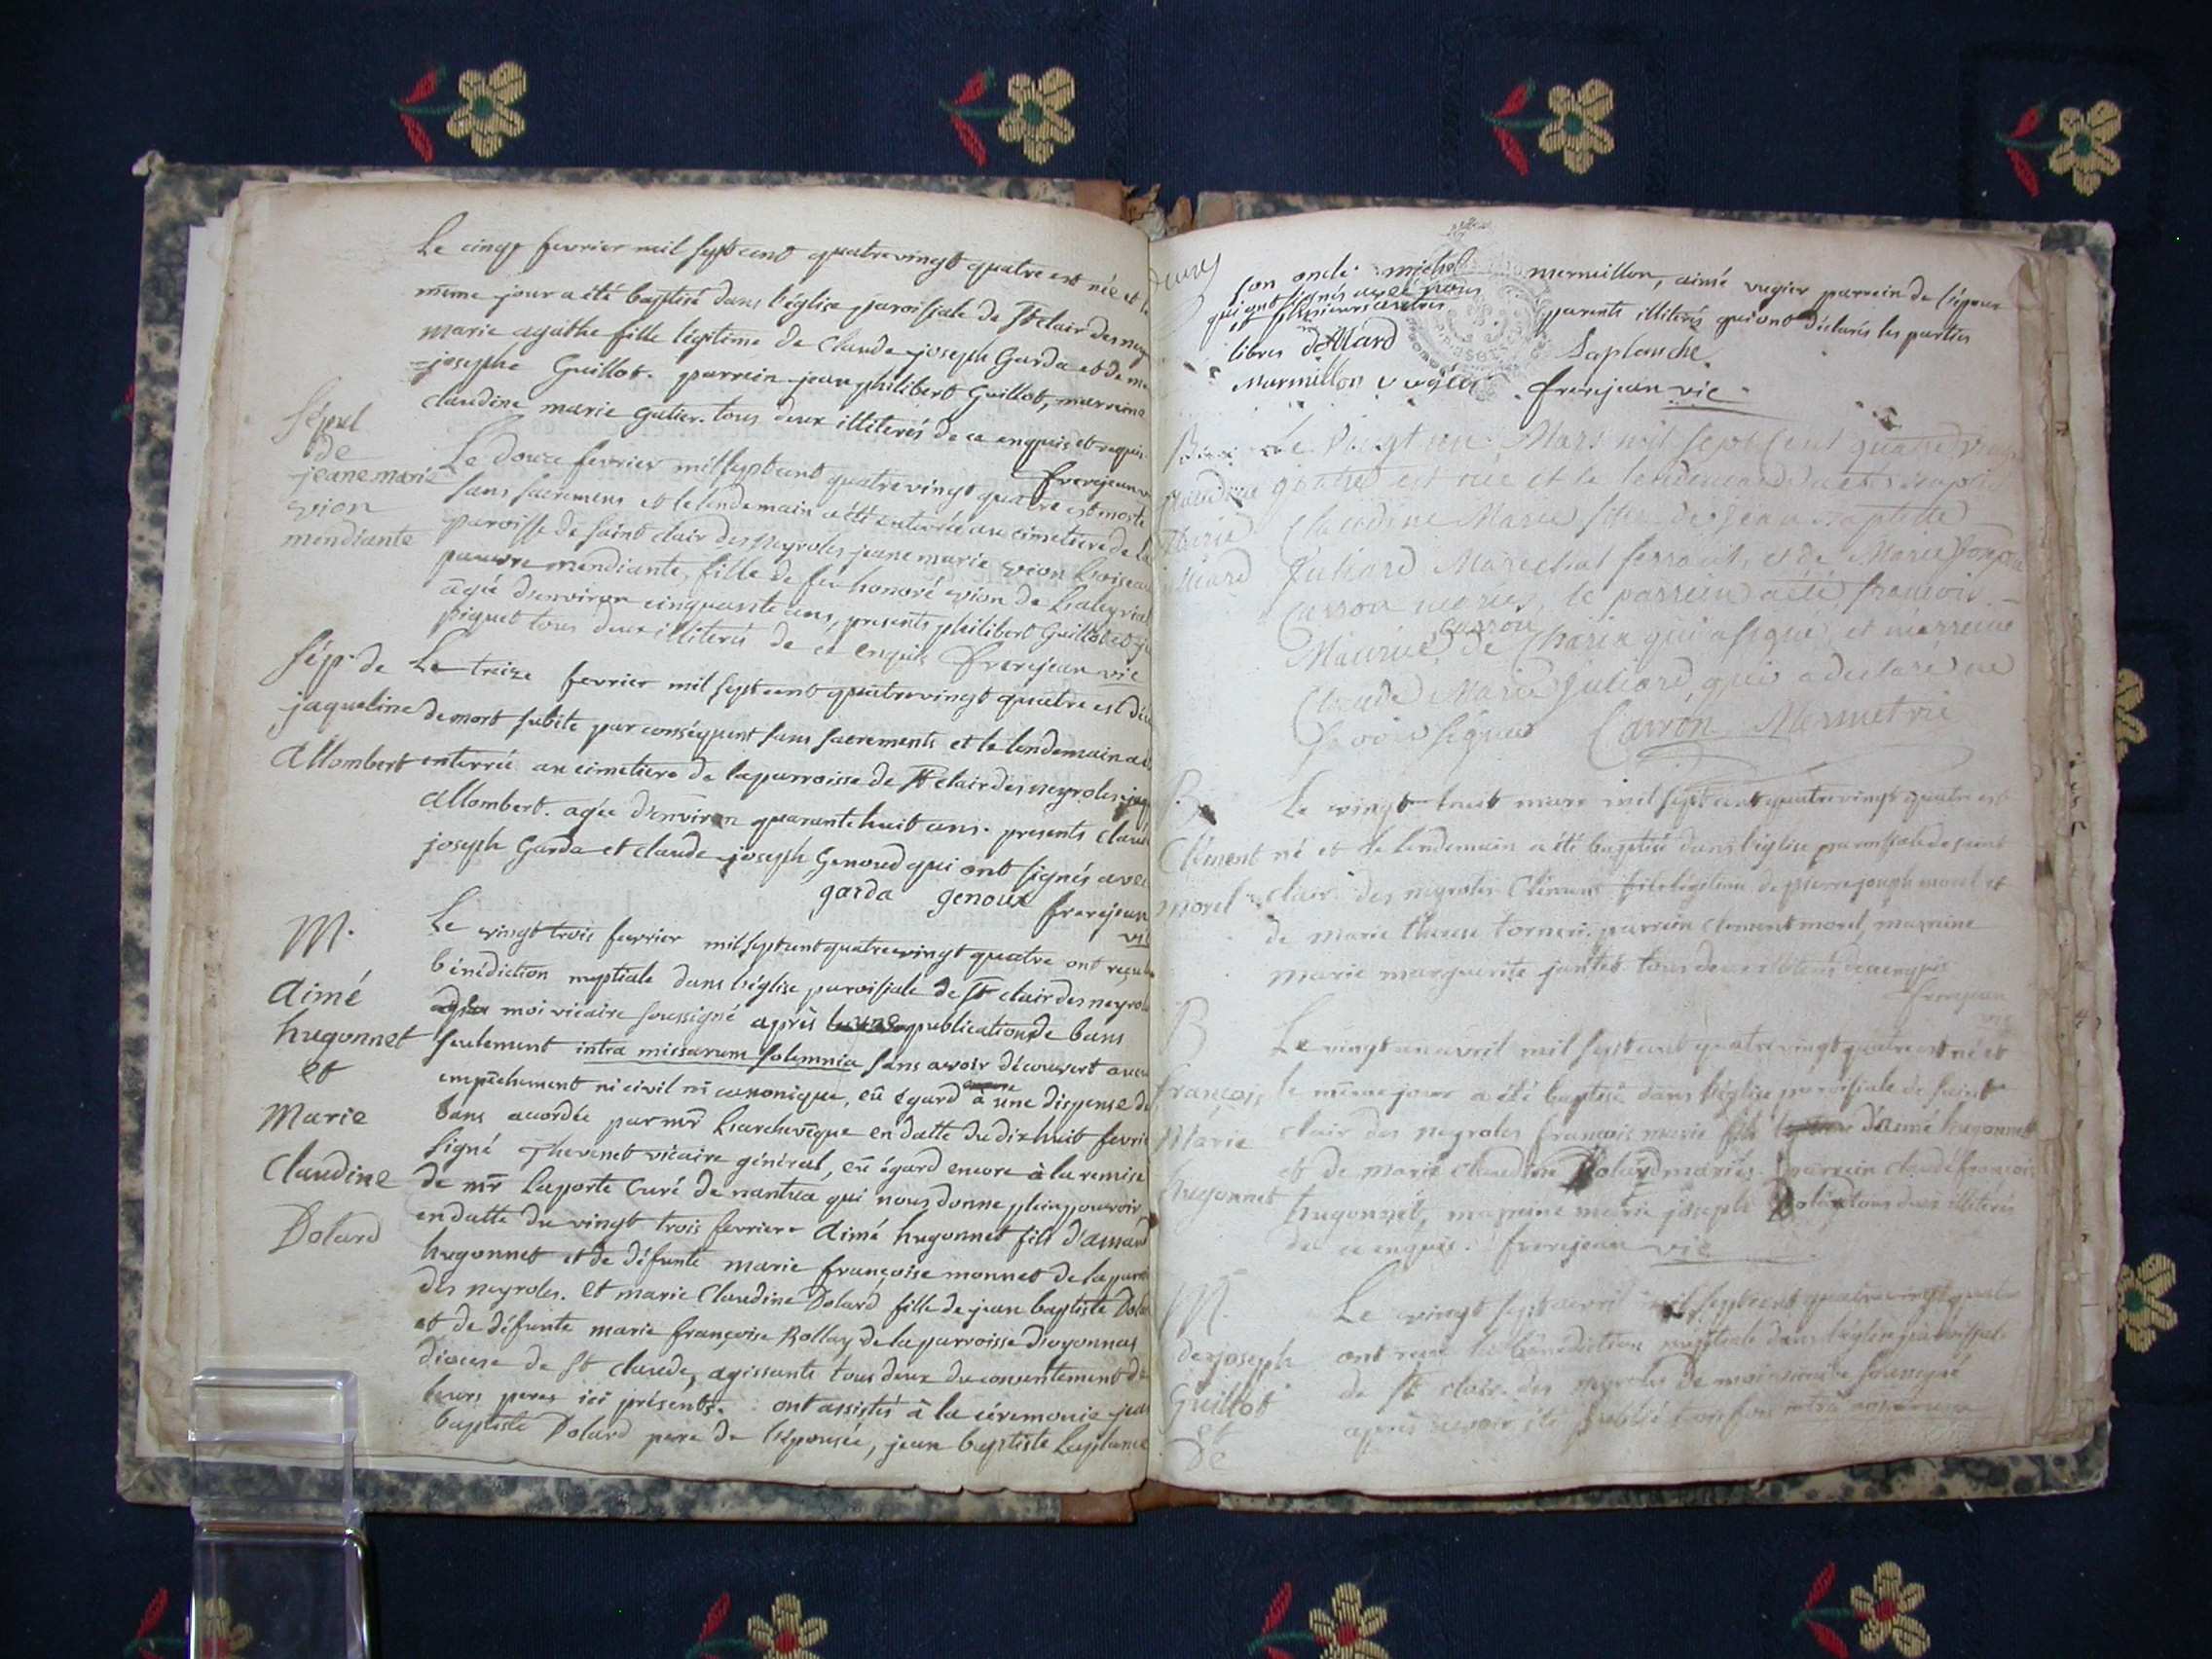 Le cinq fevrier mil sept cent quatre vingt quatre est née et le
même jour a été baptisé dans l'église paroissiale de St clair des ney
marie agathe fille légitime de Claude joseph Garda et de ma
=josephe Guillot. parrein jean philibert Guillot, marreine
claudine marie gatier. tous deux illiterés de ce enquis et requis
frerejean v
Sépul
de
jeane marie
vion
mendiante
Le douze fevrier mil sept cent quatre vingt quatre est morte
sans sacremens et le lendemain a été enterrée au cimetiere de la
paroisse de saint clair des Neyroles, jeane marie vion
pauvre mendiante, fille de feu honoré vion de
agée d'environ cinquante ans, presents philibert Guillot et
piquet tous deux illiterés de ce enquis frerejean vic
Sép. de
jaqueline
Allombert
Le treize fevrier mil sept cent quatre vingt quatre est
de mort subite par conséquent sans sacrements et le lendemain a
enterrée au cimetiere de la parroisse de St clair des neyroles
Allombert. agée d'environ quarante huit ans. presents claude
joseph Garda et claude joseph Genoud qui ont signés avec
garda genoux frerejean
vic
M.
Aimé
hugonnet
et
Marie
Claudine
Dolard
Le vingt trois fevrier mil sept cent quatre vingt quatre ont reçu la
bénédiction nuptiale dans l'église paroissiale de St clair des neyrol
moi vicaire soussigné après publication de bans
seulement intra missarum solemnia sans avoir découvert aucun
empêchement ni civil ni canonique, eû égard à une dispense de
bans acordée par mr L'archevêque en datte du dix huit fevrier
signé Thevenet vicaire général, eû égard encore à la remise
de mr Laporte Curé de nantua qui nous donne plein pouvoir
en datte du vingt trois fevrier. Aimé hugonnet fils d'amand
hugonnet et de défunte marie françoise monnet de la paroi
des neyroles. et marie Claudine Dolard fille de jean baptiste Dolar
et de défunte marie françoise Rollay de la parroisse d'oyonnas
diocese de St claude, agissants tous deux du consentement de
leurs peres ici présents. ont assistés à la céremonie jean
baptiste Dolard pere de l'épousée, jean baptiste Laplanche
son oncle. michel mermillon, aimé vugier parrein de l'époux
qui ont signés avec nous
et plusieurs autres parents illiterés qui ont déclarés les parties
libres Dollard Laplanche
Marmillon vugier frerejean vic
Le vingt un Mars mil sept Cent quatre vingt
quatre est née et le lendemain a été baptisé
Claudine Marie fille de Jean Baptiste
Juliard Marechal ferrant, et de Marie
Carron mariés, le parrein a été françois
Maurice Carron de Charix qui a signé, et marreine
Claude Marie Juliard, qui a declaré ne
Savoir signer Carron Mermet vic
B.
Clément
morel
Le vingt huit mars mil sept cent quatre vingt quatre est
né et le lendemain a été baptisé dans l'église paroissiale de saint
clair des neyroles Clément fils légitime de pierre joseph morel et
de marie therese torneri. parrein clement morel, marreine
marie marguerite jantet. tous deux illiterés de ce enquis
frerejean
vic
B
françois
Marie
hugonnet
Le vingt un avril mil sept cent quatre vingt quatre est né et
le même jour a été baptisé dans l'église paroissiale de saint
clair des neyroles françois marie fils d'aimé hugonnet
et de marie claudine Dolard mariés. parrein claude françois
hugonnet, marreine marie joseph Dolard tous deux illiterés
de ce enquis. frerejean vic
M.
de joseph
Guillot
et
De
Le vingt sept avril mil sept cent quatre vingt quatre
ont reçu la bénédiction nuptiale dans l'église paroissiale
de St clair des neyroles de moi vicaire soussigné
après avoir été publié trois fois intra missarum